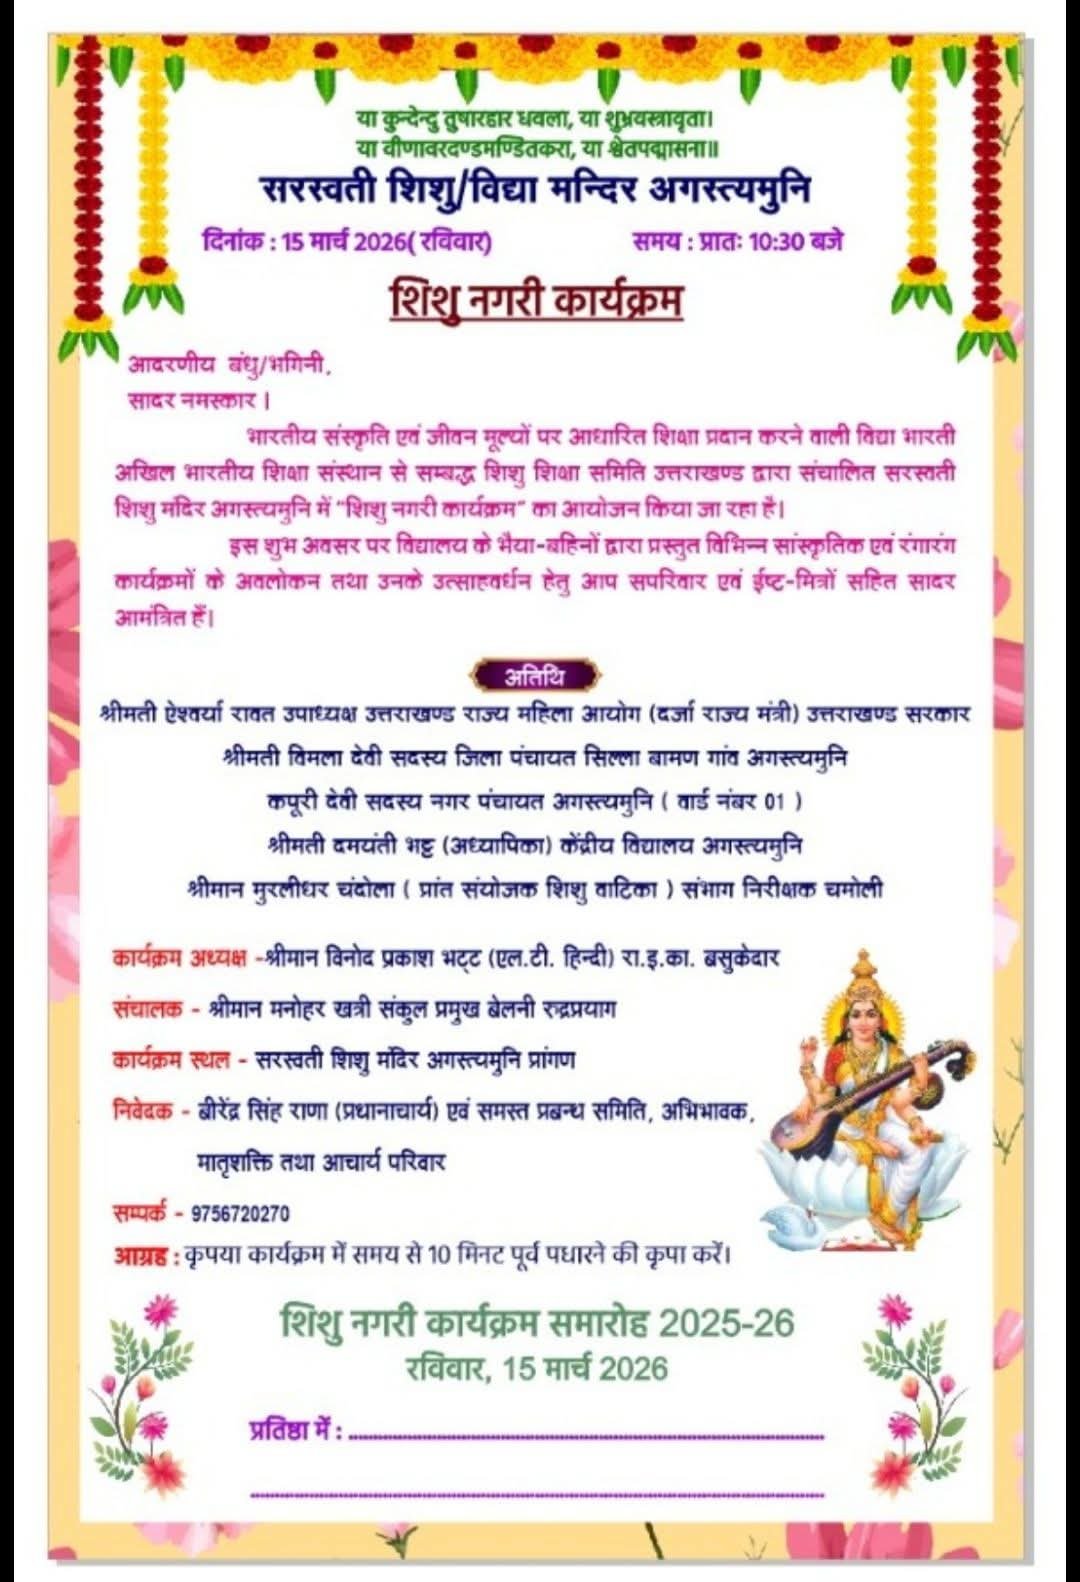 या कुन्देन्दु तुषारहार धवला, या शुभ्रवस्त्रावृता।
या वीणावरदण्डमण्डितकरा, या श्वेतपद्मासना॥
सरस्वती शिशु/विद्या मन्दिर अगस्त्यमुनि
दिनांक : 15 मार्च 2026( रविवार) समय : प्रातः 10:30 बजे
शिशु नगरी कार्यक्रम
आदरणीय बंधु/भगिनी,
सादर नमस्कार |
भारतीय संस्कृति एवं जीवन मूल्यों पर आधारित शिक्षा प्रदान करने वाली विद्या भारती
अखिल भारतीय शिक्षा संस्थान से सम्बद्ध शिशु शिक्षा समिति उत्तराखण्ड द्वारा संचालित सरस्वती
शिशु मंदिर अगस्त्यमुनि में "शिशु नगरी कार्यक्रम" का आयोजन किया जा रहा है।
इस शुभ अवसर पर विद्यालय के भैया-बहिनों द्वारा प्रस्तुत विभिन्न सांस्कृतिक एवं रंगारंग
कार्यक्रमों के अवलोकन तथा उनके उत्साहवर्धन हेतु आप सपरिवार एवं ईष्ट-मित्रों सहित सादर
आमंत्रित हैं।
अतिथि
श्रीमती ऐश्वर्या रावत उपाध्यक्ष उत्तराखण्ड राज्य महिला आयोग (दर्जा राज्य मंत्री) उत्तराखण्ड सरकार
श्रीमती विमला देवी सदस्य जिला पंचायत सिल्ला बामण गांव अगस्त्यमुनि
कपूरी देवी सदस्य नगर पंचायत अगस्त्यमुनि ( वार्ड नंबर 01 )
श्रीमती दमयंती भट्ट (अध्यापिका) केंद्रीय विद्यालय अगस्त्यमुनि
श्रीमान मुरलीधर चंदोला ( प्रांत संयोजक शिशु वाटिका ) संभाग निरीक्षक चमोली
कार्यक्रम अध्यक्ष -श्रीमान विनोद प्रकाश भट्ट (एल.टी. हिन्दी) रा.इ.का. बसुकेदार
संचालक - श्रीमान मनोहर खत्री संकुल प्रमुख बेलनी रुद्रप्रयाग
कार्यक्रम स्थल - सरस्वती शिशु मंदिर अगस्त्यमुनि प्रांगण
निवेदक - बीरेंद्र सिंह राणा (प्रधानाचार्य) एवं समस्त प्रबन्ध समिति, अभिभावक,
मातृशक्ति तथा आचार्य परिवार
सम्पर्क - 9756720270
आग्रह : कृपया कार्यक्रम में समय से 10 मिनट पूर्व पधारने की कृपा करें।
शिशु नगरी कार्यक्रम समारोह 2025-26
रविवार, 15 मार्च 2026
प्रतिष्ठा में :